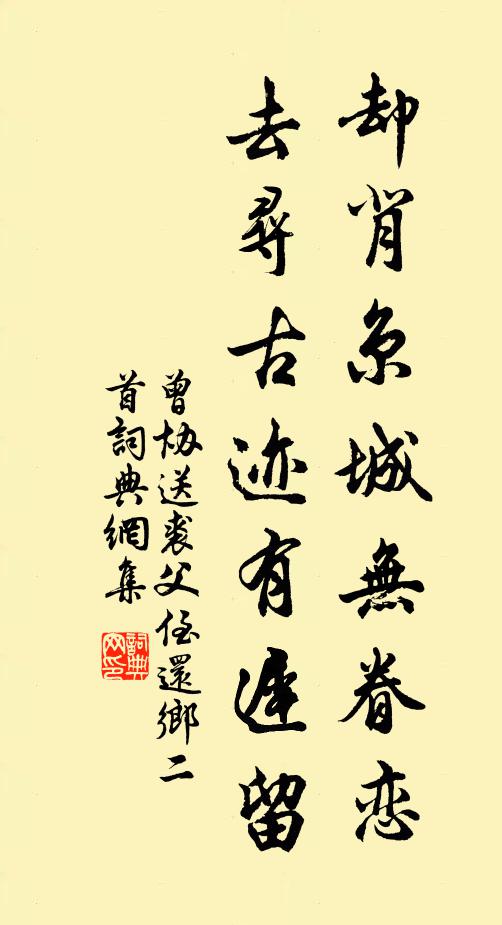 却背京城無眷恋
去尋古迹有遲留
曾協送裘父侄還鄉二
首詞典網集
詞典
网印